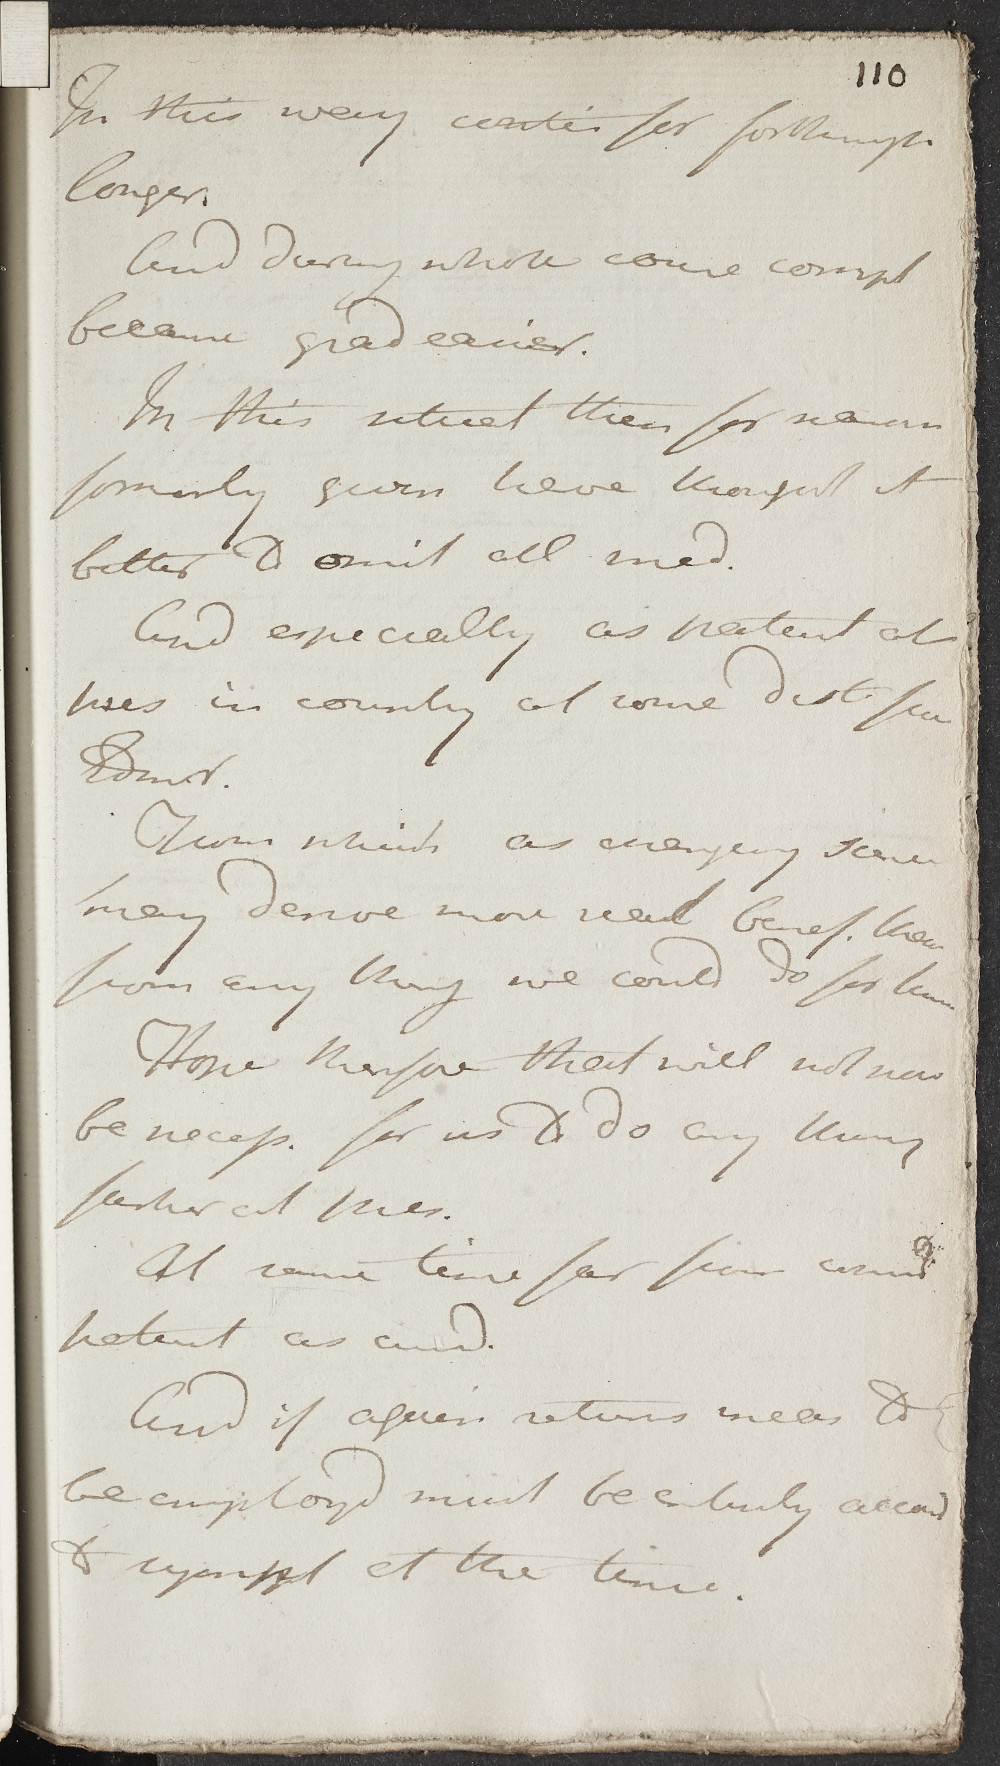 110
In this way contin for fortknight
longer.
And During whole course compl
became grad easier.
In this situat then for reason
formerly given have thought it
better to omit all med.
And especially as patient at
pres in country at some dist. fro
Edinr.
From which as changing scene
may Derive more real benef. than
from any thing we could Do for him
Hope therefore that will not now
be necess. for us to Do any thing
farther at pres.
At same time far from consid
patient as cured.
And if again returns meas to
be employ'd must be entirely accord
to sympt at the time.